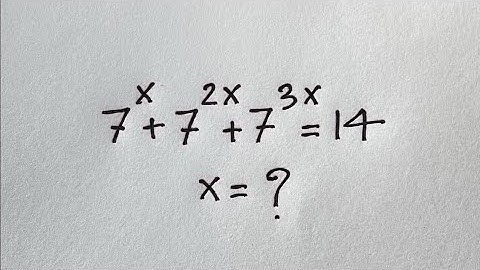 7^x + 7^2x + 7^3x = 14
x = ?